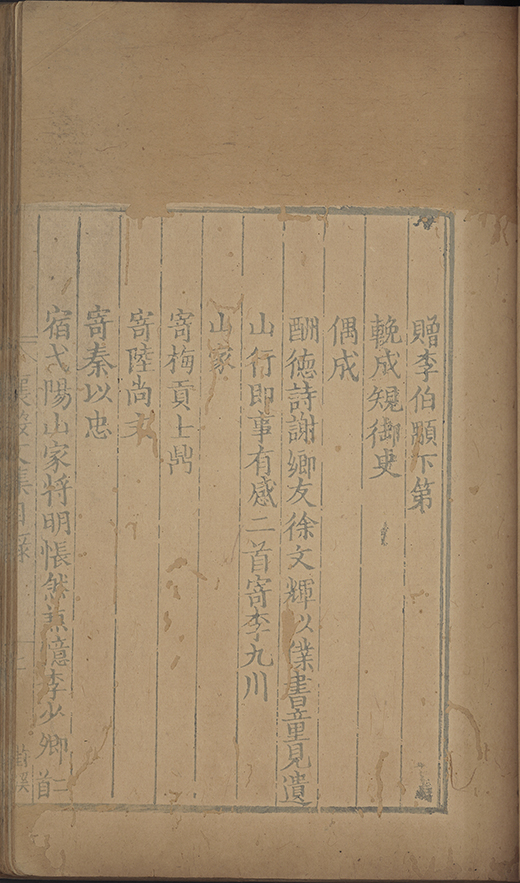 贈李伯顒下第
輓成規御史
偶成
酬德詩謝鄉友徐文輝以業書童見遺
山行即事有感二首寄李九川
山家
寄梅貢士鼎
寄陸尚
寄秦以忠
宿弋陽山家将明悵然兼憶李少卿二首
文集目錄